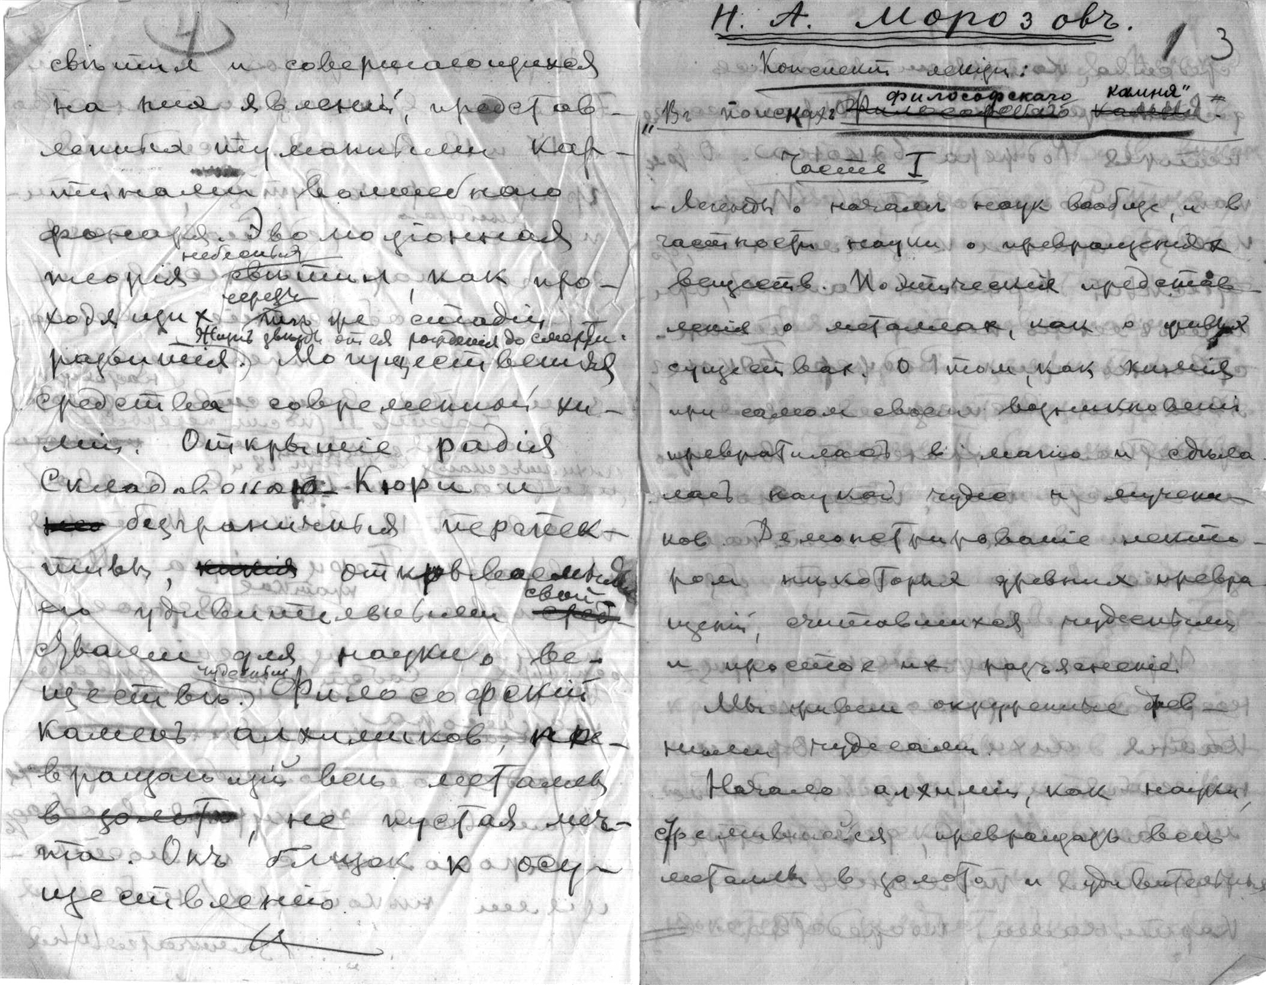 4
свѣтил и совершающихся
на них явлений, представ-
лениыя туманными кар-
тинами волшебнаго
фонаря. Эволюціонная
теорія небесныя свѣтил, как про-
ходящих через три стадіи
Жизнь звѣзды от ея рожденія до смерти.
развитія. Могущественныя
средства современной хи-
міи. Открытіе радія
Складовскою-Кюри и
безграничныя перспек-
тивы, открываемыя
его удивительными свой
ствами для науки о ве-
ществѣ. Чудесный Философскій
камень алхимиков, пре-
вращающій всѣ металлы
в золото, не пустая меч-
та. Он близок к осу-
ществленію.
Н. А. Морозовъ.
1 3
Конспект лекціи:
„Въ поисках философскаго камня"
Часть I
Легенды о началѣ наук вообще, и в
частности науки о превращениях
веществ. Поэтическия представ-
ленія о металлах, как о живых
существах. О том, как химія
при самом своем возникновеніи
превратилась в магію и сдѣла-
лась наукой чудес и мучени-
ков. Демонстрированіе нѣкто-
рои нѣкоторыя древних превра-
щеній, считавшихся чудесными
и простое их разъясненіе.
Мы живем окруженные древ-
ними чудесами.
Начало алхиміи, как науки,
стремившейся превращать всѣ
металлы в золото и удивительныя